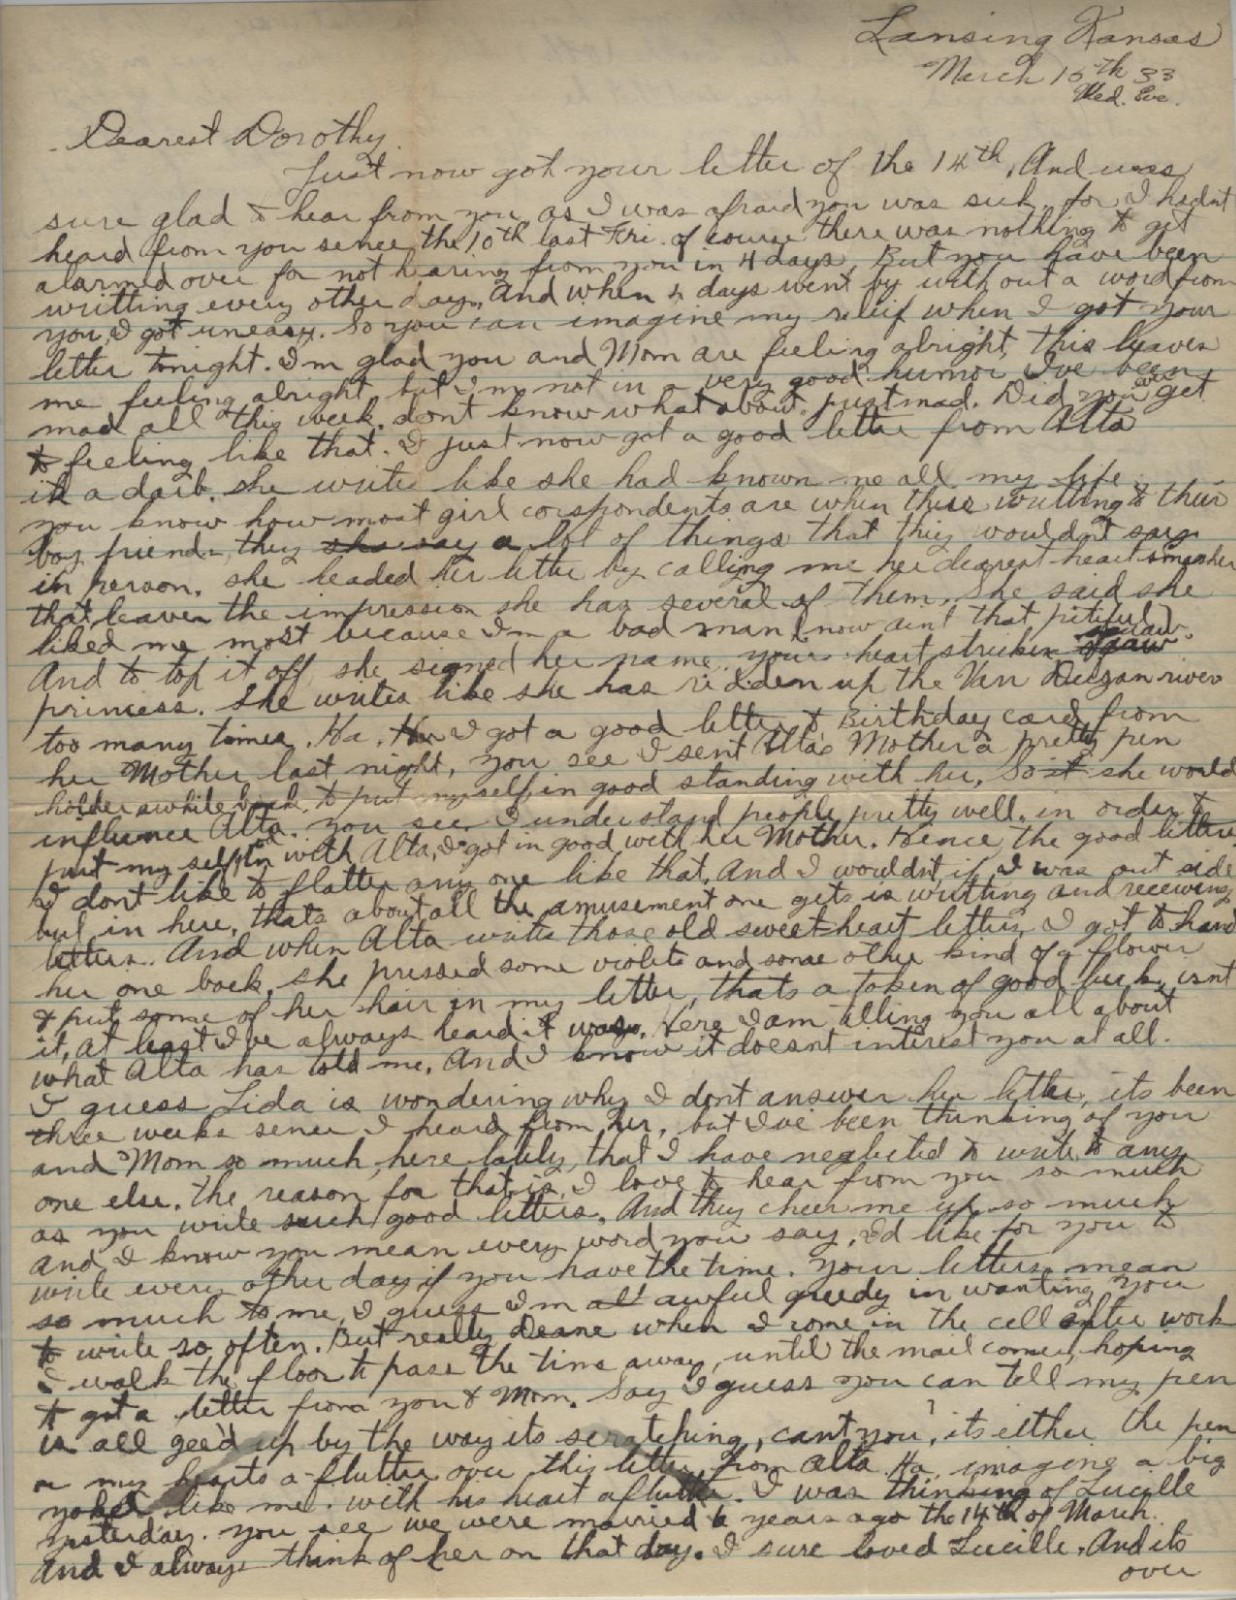 Lansing Kansas
March 15th 33
Wed. Eve.
Dearest Dorothy.
Just now got your letter of the 14th, And was
sure glad to hear from you as I was afraid you was sick, for I hadn't
heard from you sence the 10th last Fri. of course there was nothing to get
alarmed over for not hearing from you in 4 days, But you have been
writting every other day, And when 4 days went by with out a word from
you, I got uneasy. So you can imagine my releif when I got your
letter tonight. I'm glad you and Mom are feeling alright, this leaves
me feeling alright, but I'm not in a very good humor I've been
mad all this week. don't know what about, just mad. Did you ever get
to feeling like that. I just now got a good letter from Alta
is a darb. she writes like she had known me all my life,
you know how most girl corspondents are when these writting to their
boy friends, they she say a lot of things that they wouldn't say
in person. she headed her letter by calling me her dearest heart smasher
that leaves the impression she has several of them. She said she
liked me most because I'm a bad man (now ain't that pitiful)
And to top it off, she signed her name. your heart stricken squaw squaw
princess. She writes like she has ridden up the Verdegan river
too many times. Ha. Ha I got a good letter & Birthday card from
her Mother last night, you see I sent Alta's Mother a pretty pen
holder awhile back, to put myself in good standing with her, So it she would
influence Alta. you see I understand people pretty well. in order to
put my self in with Alta, I got in good with her Mother. Hence, the good letters.
I don't like to flatter any one like that, And I wouldn't if I was out side
but in here, thats about all the amusement one gets is writting and receiving
letters. And when Alta writes those old sweet heart letters, I got to hand
her one back, she pressed some violets and some other kind of a flower
& put some of her hair in my letter, thats a token of good luck, isnt
it, at least I've always heard it was. Here I am telling you all about
what Alta has told me, And I know it doesnt interest you at all.
I guess Lida is wondering why I dont answer her letter, its been
three weeks sence I heard from her, but I've been thinking of you
and Mom so much, here lately, that I have neglected to write to any
one else. the reason for that is, I love to hear from you so much
as you write such good letters, And they cheer me up so much
and I know you mean every word you say, I'd like for you to
write every other day if you have the time. Your letters mean
so much to me, I guess I'm all awful greedy in wanting you
to write so often. But really Deane when I come in the cell after work
I walk the floor to pass the time away, until the mail comes, hoping
to get a letter from you & Mom. Say I guess you can tell my pen
is all gee'd up by the way its scratching, cant you? its either the pen
or my hearts a-flutter over this letter from Alta Ha, imagine a big
yokel like me. with his heart a flutter. I was thinking of Lucille
yesterday. you see we were married 6 years ago the 14th of March.
And I always think of her on that day. I sure loved Lucille. And its
over